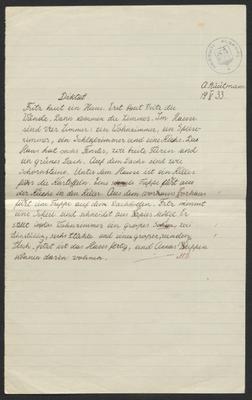 A. Hüttmann
19 8 33.
Diktat
Fritz baut ein Haus. Erst baut Fritz die
Wände. Dann kommen die Zimmer. Im Hause
sind vier Zimmer: ein Wohnzimmer, ein Speise-
zimmer, ein Schlafzimmer und eine Küche. Das
Haus hat sechs Fenster, zwei feste Türen und
ein grünes Dach. Auf dem Dache sind zwei
Schornsteine. Unter dem Hause ist ein Keller
für die Kartoffeln. Eine Treppe führt aus
der Küche in den Keller. Aus dem vorhaus
führt eine Treppe auf dem Dachboden. Fritz nimmt
eine Schere und schneidet aus Papier Möbel. Er
stellt ins Wohnzimmer ein großes
Lehnstühle, sechs Stühle und einen großen, runden
Tisch. Jetzt ist das Haus fertig, und Puppen
können darin wohnen.